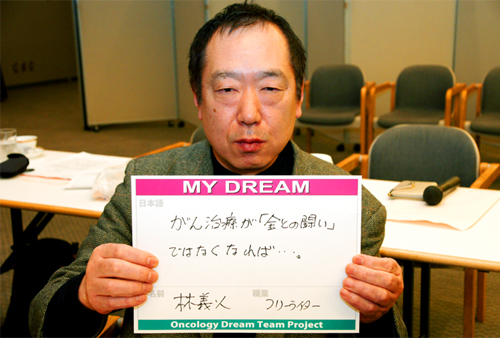 MY DREAM
日本語
がん治療が「金との闘い」
ではなくなれば…。
名前 職業
林義人 フリーライター
Oncology Dream Team Project